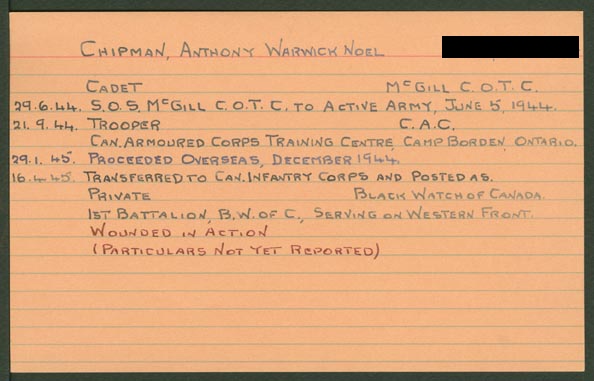 CHIPMAN, ANTHONY WARWICK NOEL
CADET McGILL C.O.T.C.
29.6.44. S.O.S. McGILL C.O.T.C. TO ACTIVE ARMY, JUNE 5, 1944.
21.9.44. TROOPER C.A.C.
CAN. ARMOURED CORPS TRAINING CENTRE, CAMP BORDEN, ONTARIO.
29.1.45. PROCEEDED OVERSEAS, DECEMBER 1944.
16.4.45. TRANSFERRED TO CAN. INFANTRY CORPS AND POSTED AS.
PRIVATE BLACK WATCH OF CANADA.
1ST BATTALION, B.W. OF C., SERVING ON WESTERN FRONT.
WOUNDED IN ACTION
(PARTICULARS NOT YET REPORTED)